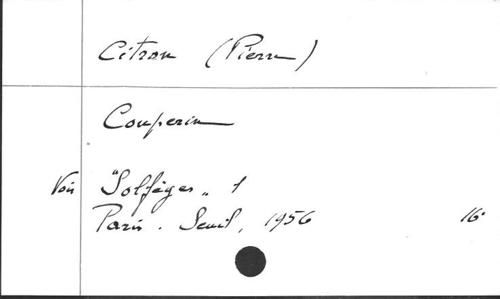 Citron (Pierre)
Couperin
Voir "Solfèges" 1
Paris. Seuil, 1956 16°